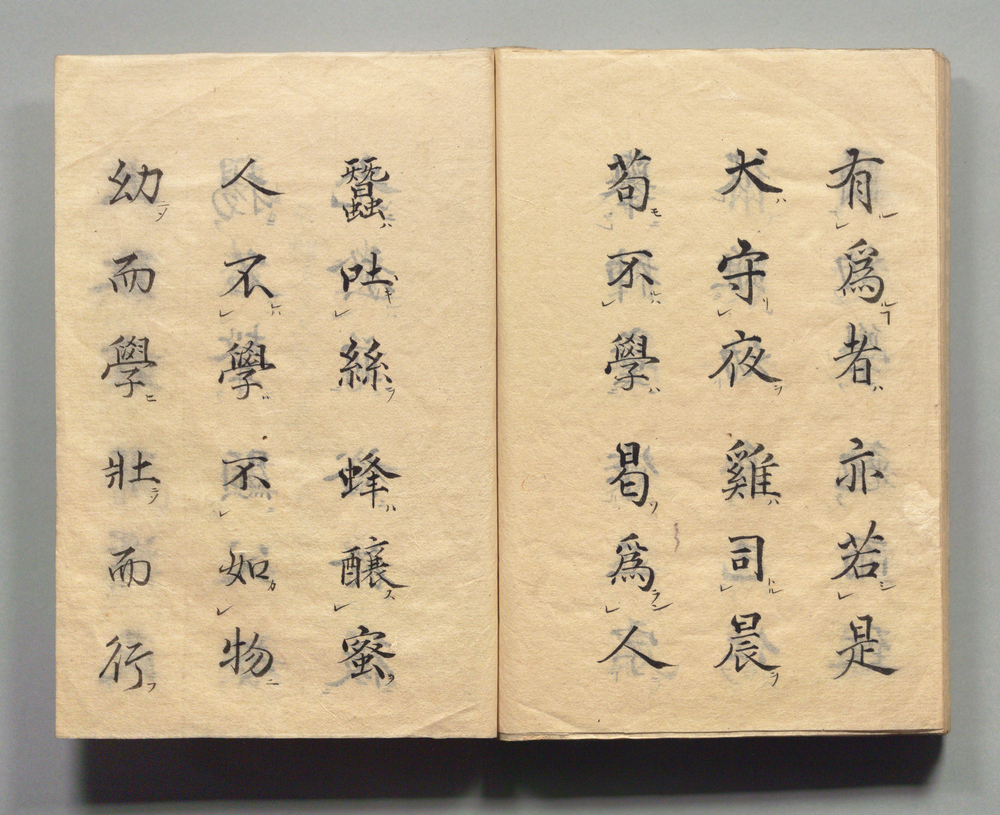 有爲者亦若是
犬守夜雞司晨
苟不學曷爲人
蠶吐絲蜂釀蜜
人不學不如物
幼而學壯而行